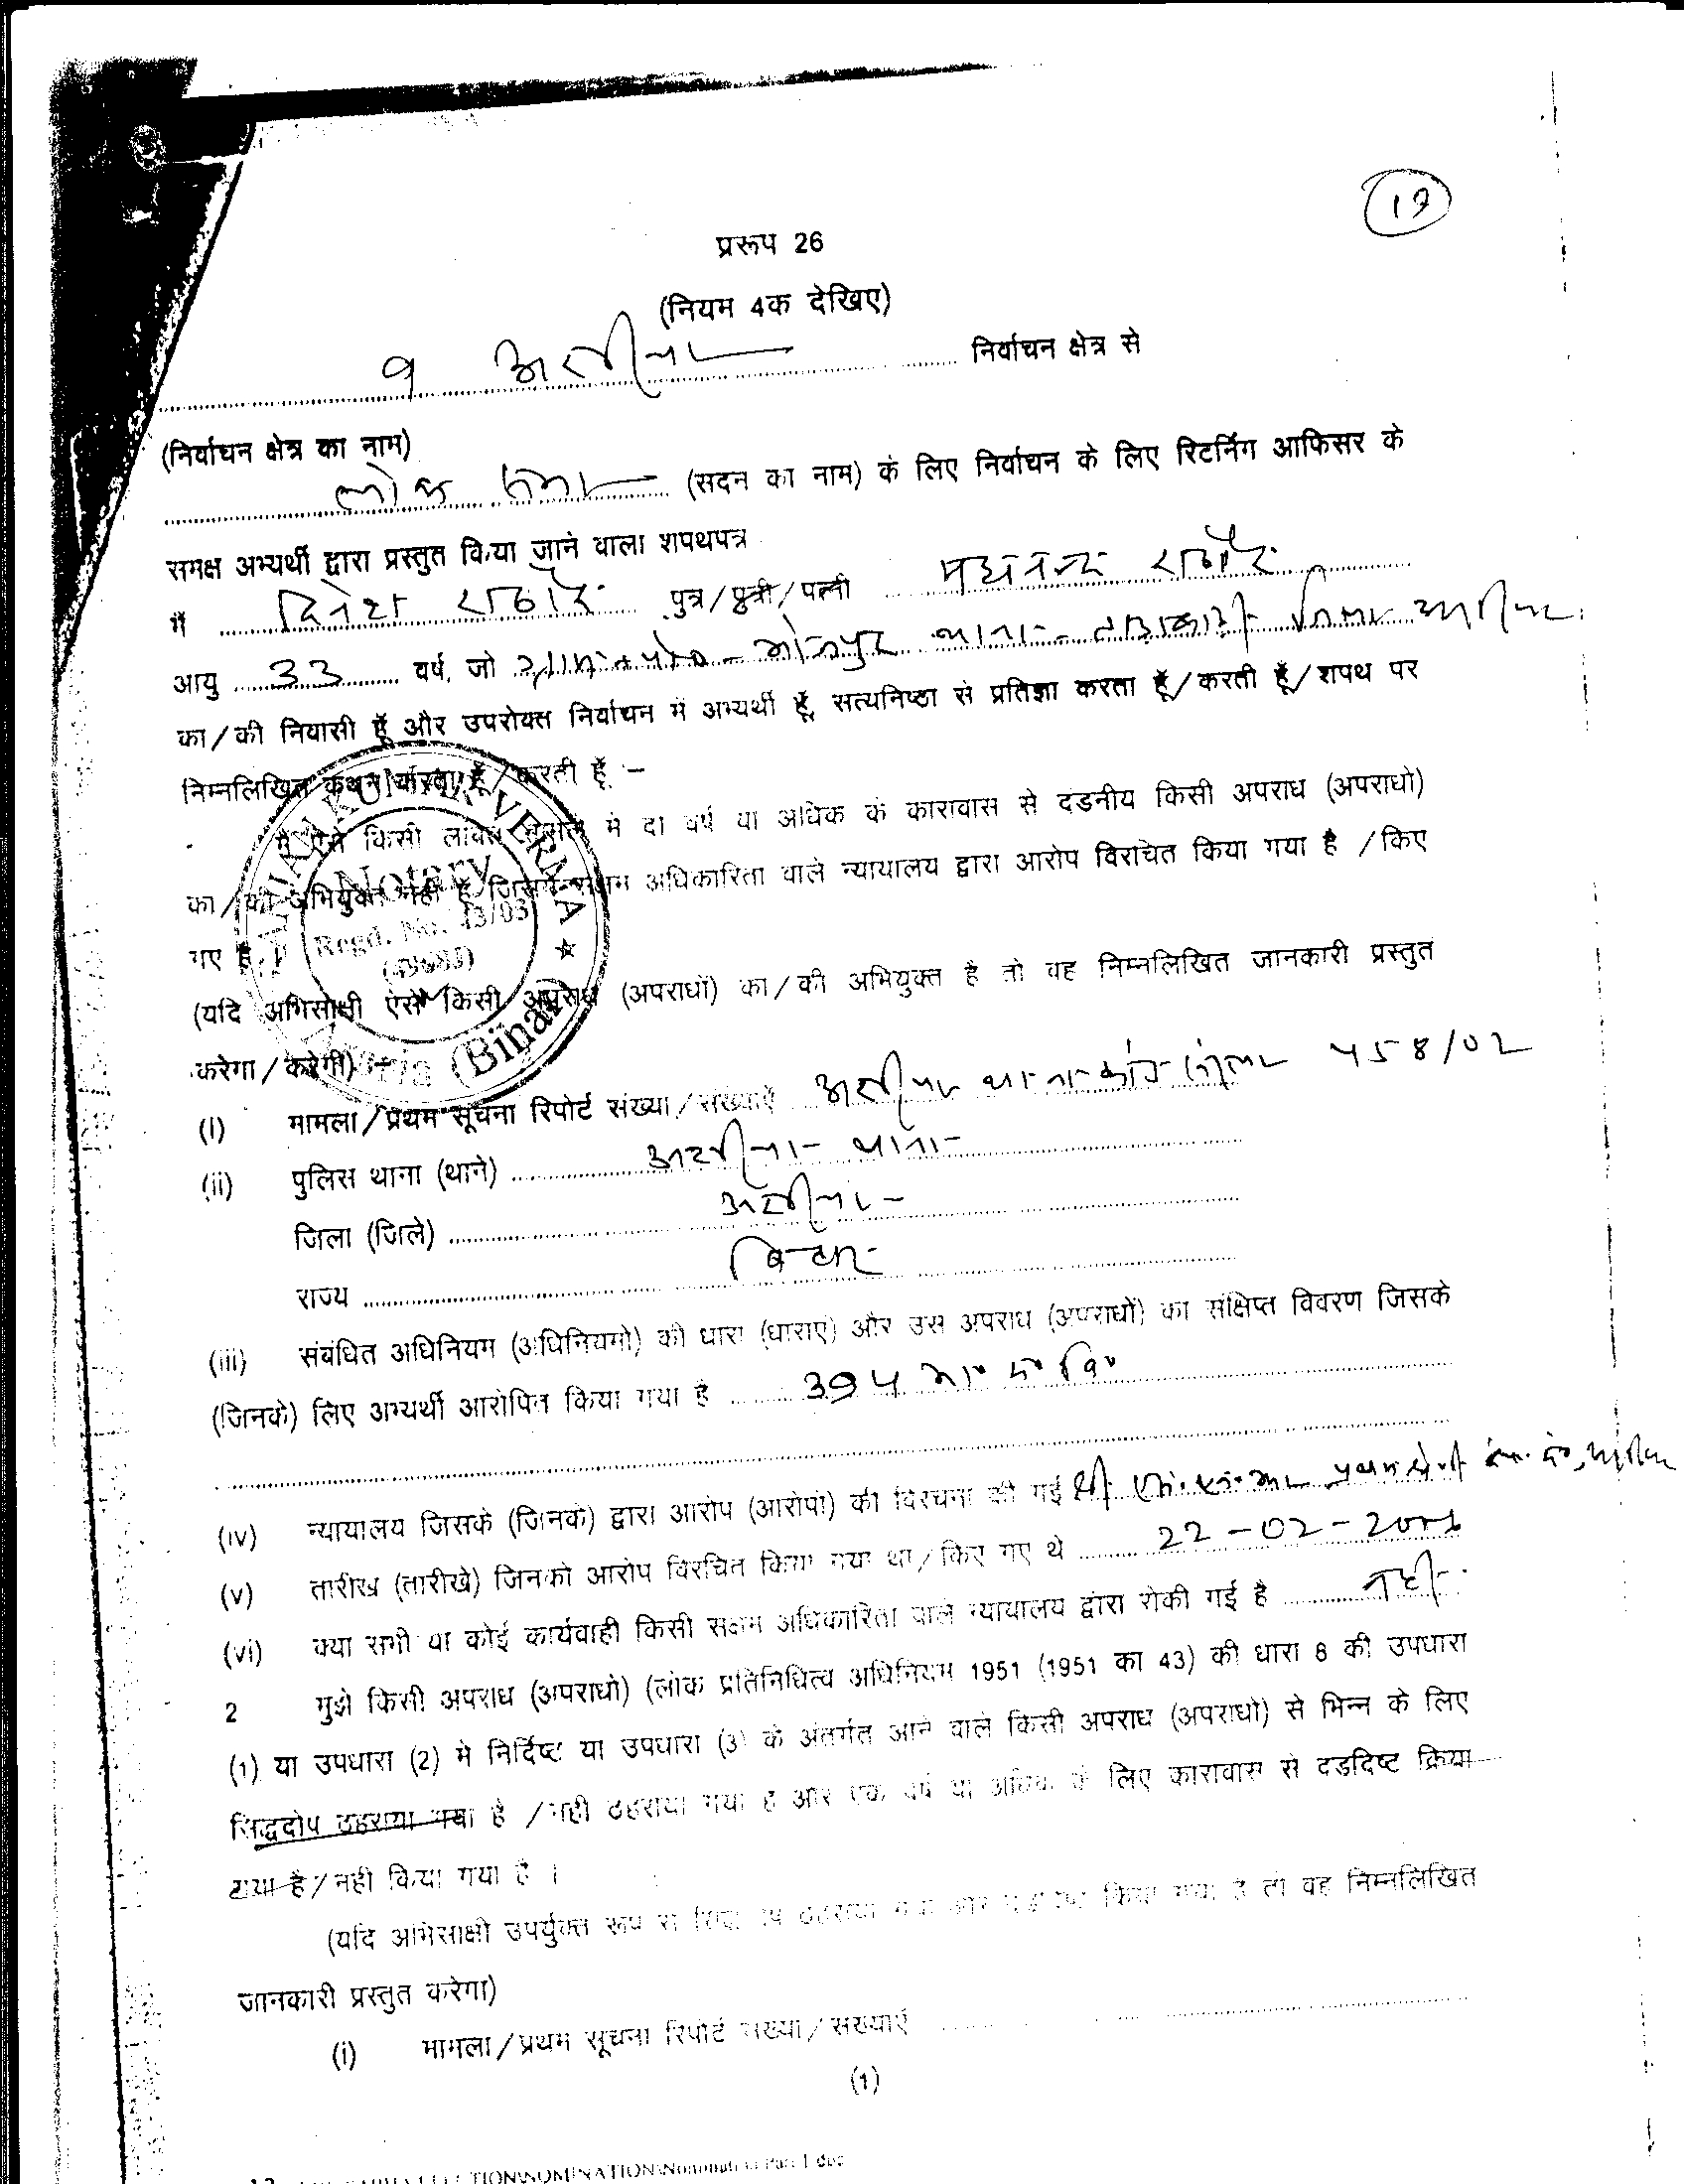 प्ररूप 26
(नियम 4क देखिए)
9 अररिया निर्वाचन क्षेत्र से
(निर्वाचन क्षेत्र का नाम)
लोक सभा (सदन का नाम) के लिए निर्वाचन के लिए रिटर्निंग आफिसर के
समक्ष अभ्यर्थी द्वारा प्रस्तुत किया जाने वाला शपथपत्र
मैं दिनेश राठौर पुत्र/पुत्री/पत्नी राठौर
आयु 33 वर्ष, जो थाना
का/की निवासी हूँ और उपरोक्त निर्वाचन में अभ्यर्थी हूँ, सत्यनिष्ठा से प्रतिज्ञा करता हूँ/करती हूँ/शपथ पर
निम्नलिखित कथन करता हूँ/करती हूँ :–
मैं ऐसे किसी लंबित मामले में दो वर्ष या अधिक के कारावास से दंडनीय किसी अपराध (अपराधों)
का/की अभियुक्त नहीं हूँ जिसमें सक्षम अधिकारिता वाले न्यायालय द्वारा आरोप विरचित किया गया है /किए
गए हैं
VERMA
Notary
Regd. No. 43/03
(Bihar)
(यदि अभिसाक्षी ऐसे किसी अपराध (अपराधों) का/की अभियुक्त है तो वह निम्नलिखित जानकारी प्रस्तुत
करेगा/करेगी) :–
(i) मामला/प्रथम सूचना रिपोर्ट संख्या/संख्याएं थाना कांड 458/02
(ii) पुलिस थाना (थाने) अररिया थाना
जिला (जिले) अररिया
राज्य बिहार
(iii) संबंधित अधिनियम (अधिनियमों) की धारा (धाराएं) और उस अपराध (अपराधों) का संक्षिप्त विवरण जिसके
(जिनके) लिए अभ्यर्थी आरोपित किया गया है 394 भा० द० वि०
(iv) न्यायालय जिसके (जिनके) द्वारा आरोप (आरोपों) की विरचना की गई श्री
(v) तारीख (तारीखें) जिनको आरोप विरचित किया गया था/किए गए थे 22-02-
(vi) क्या सभी या कोई कार्यवाही किसी सक्षम अधिकारिता वाले न्यायालय द्वारा रोकी गई है नहीं
2 मुझे किसी अपराध (अपराधों) (लोक प्रतिनिधित्व अधिनियम 1951 (1951 का 43) की धारा 8 की उपधारा
(1) या उपधारा (2) में निर्दिष्ट या उपधारा (3) के अंतर्गत आने वाले किसी अपराध (अपराधों) से भिन्न के लिए
सिद्धदोष ठहराया गया है /नहीं ठहराया गया है और एक वर्ष या अधिक के लिए कारावास से दंडदिष्ट किया
गया है/नहीं किया गया है ।
(यदि अभिसाक्षी उपर्युक्त रूप से ठहराया गया किया गया है तो वह निम्नलिखित
जानकारी प्रस्तुत करेगा)
(i) मामला/प्रथम सूचना रिपोर्ट संख्या/संख्याएं
(1)